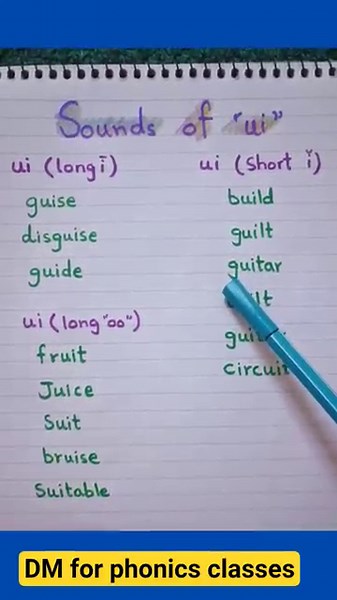 Sounds of "ui"
ui (long ī)
guise
disguise
guide
ui (long "oo")
fruit
Juice
Suit
bruise
Suitable
ui (Short ĭ)
build
guilt
guitar
circuit
DM for phonics classes